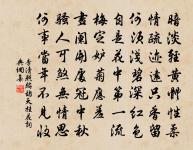 暗淡輕黃體性柔
情疏迹遠只香留
何須淺碧深紅色
自是花中第一流
梅定妒菊應羞
畫闌開處冠中秋
騷人可煞無情思
何事當年不見收
李清照鷓鴣天桂花詞